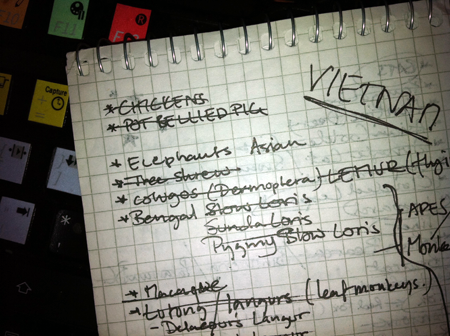 VIETNAM
* CHICKENS
* POT BELLIED PIG
* Elephants Asian
* Tree shrew
* colugos (Dermoptera) LEMUR
* Bengal Slow Loris
Sunda Loris
Pygmy Slow Loris
APES
* Macaque
Lutong / langurs (leaf monkeys.)
- Delacours Langur
Capture
F11